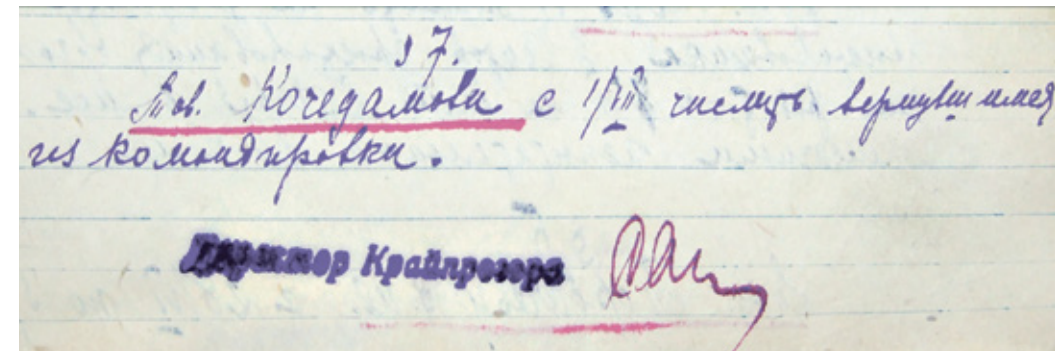 37.
Тов. Кочедамова с 1/VIII числить вернувшимся
из командировки.
Директор Крайпрогора